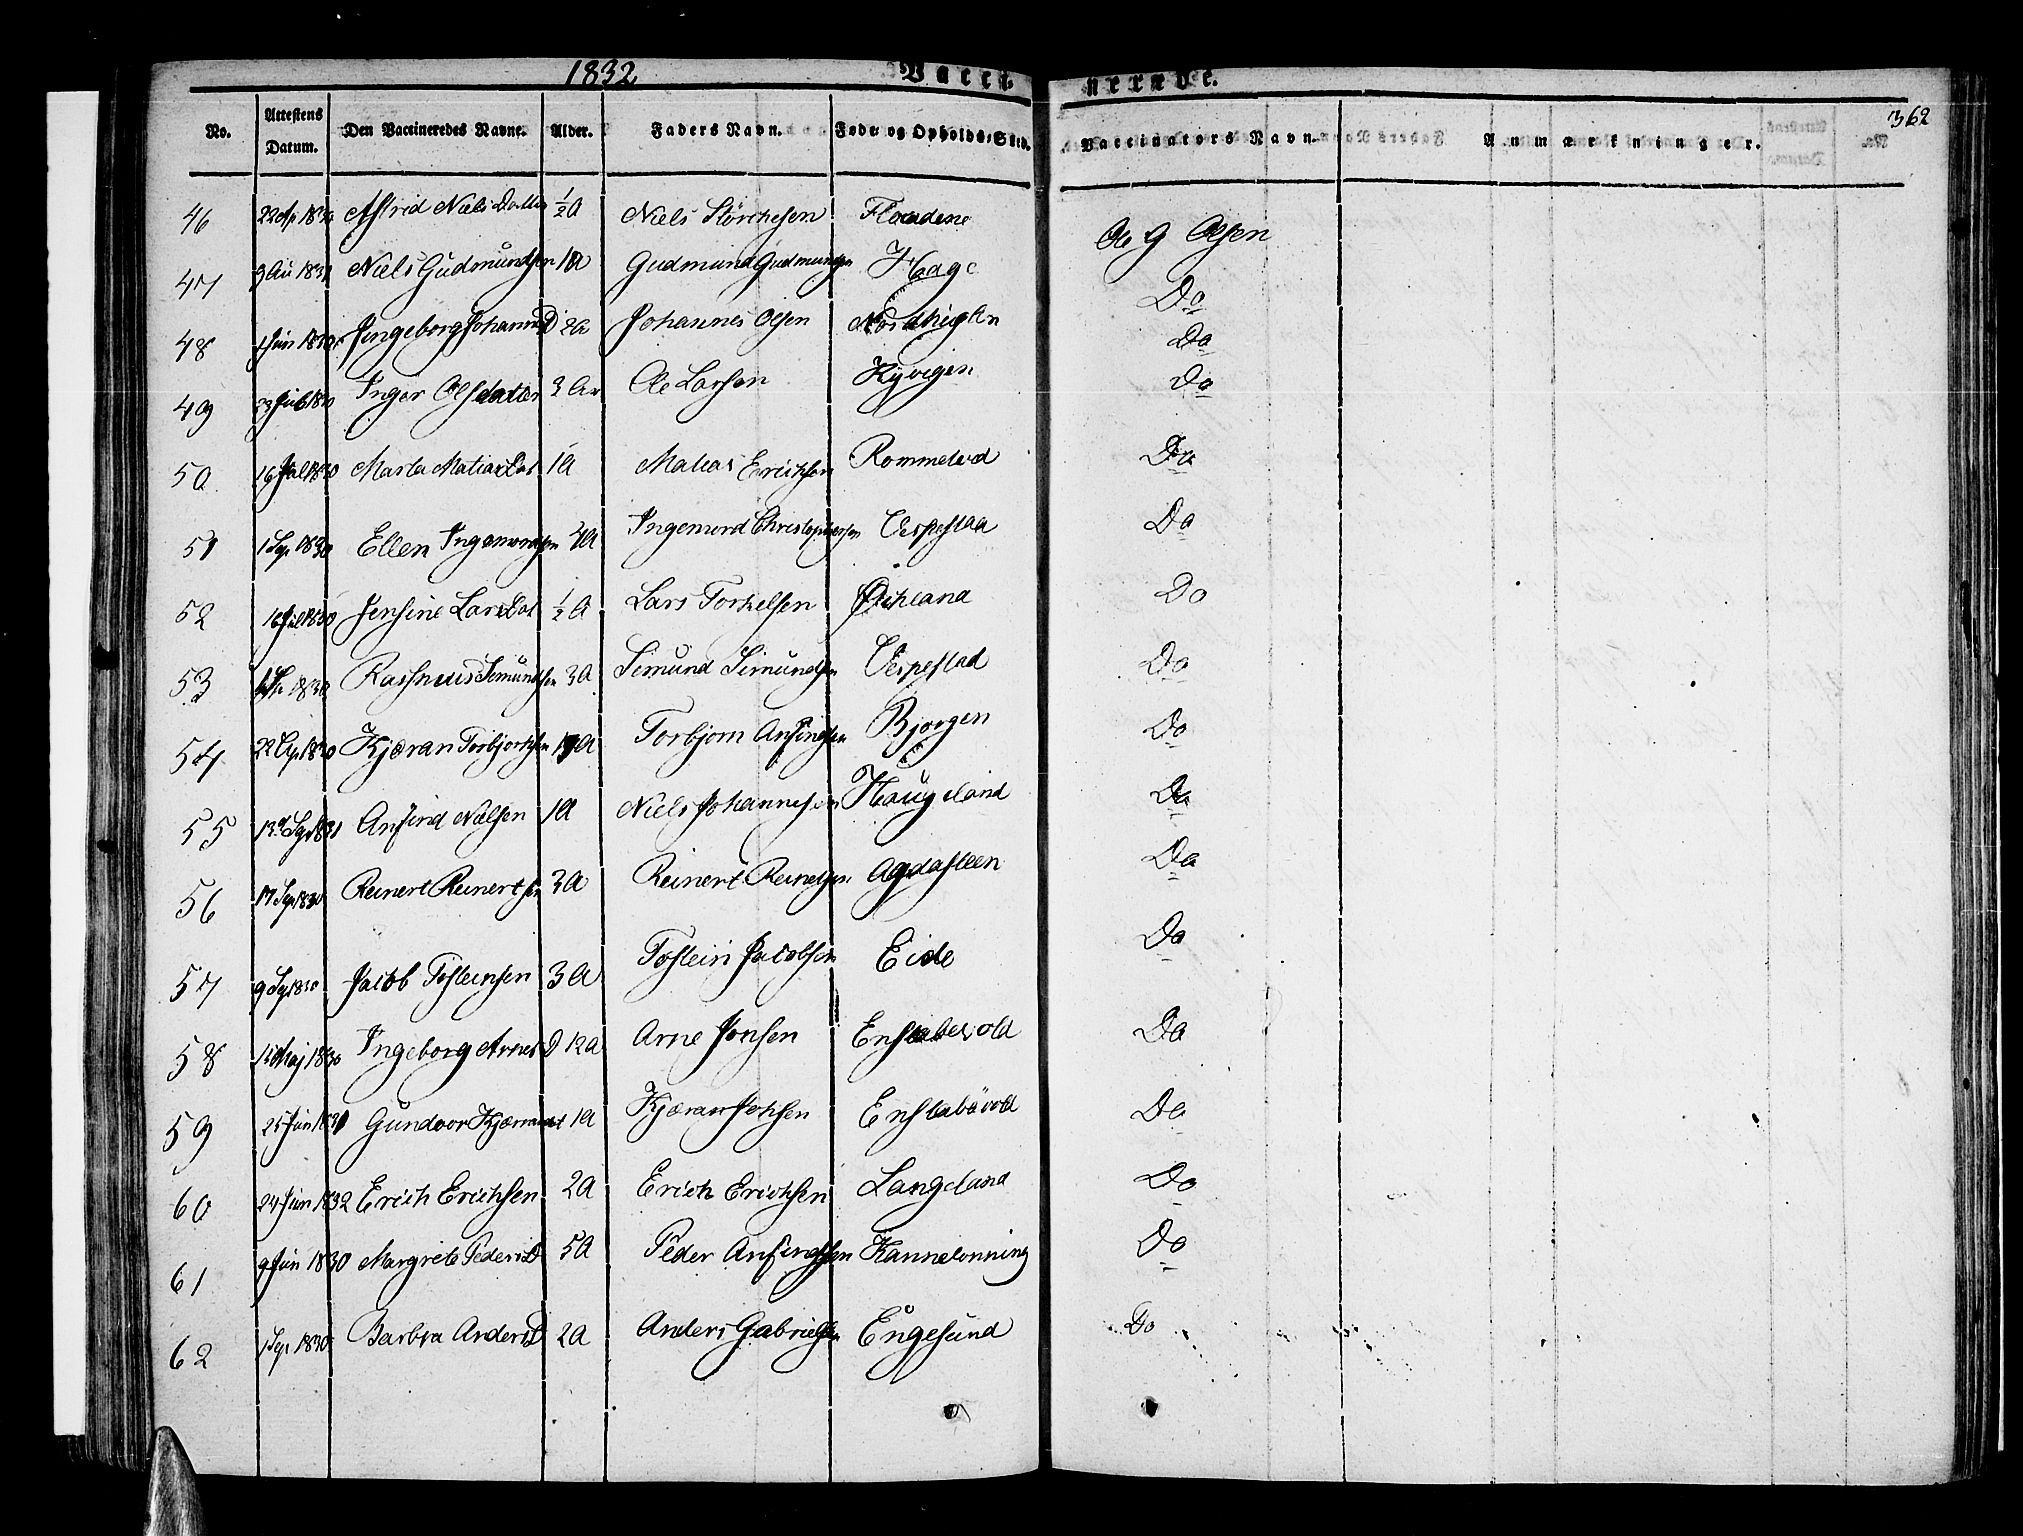 1832 Vacci nerede.
362
No. Attestens Datum. Den Vaccineredes Navne. Alder. Faders Navn. Føde- og Opholds-Sted. Vaccinators Navn. Anmærkninger.
46 22 1830 Astrid Niels Datter ½ A Niels Störchesen Ole G Olsen
47 9 1831 Niels Gudmundsen 1 A Gudmund Gudmundsen Hage Do
48 Jun 1830 Ingeborg Johannes D 2 a Johannes Olsen Do
49 23 Juli 1830 Inger Olsdatter 3 Aar Ole Larsen Kyvigen Do
50 16 Jul 1830 Marta Matias Dat 1 A Matias Erichsen Do
51 1 Sep 1830 Ellen 4 A Ingemord Christophersen Vespestad Do
52 16 Jul 1830 Jensine Lars Dat ½ A Lars Torkelsen Do
53 1830 Rasmus Simundsen 3 A Simund Simundsen Vespestad Do
54 22 1830 Kjæran Torbjørnsen A Torbjorn Anfindsen Bjorgen Do
55 13d Sep 1831 Anfind Nielsen 1 A Niels Johannesen Haugeland Do
56 17 Sep 1830 Reinert Reinertsen 3 A Reinert Reinertsen Agdasteen Do
57 9 Sep 1830 Jacob Tosteinsen 3 A Tostein Jacobsen Eide Do
58 Maj 1830 Ingeborg Arnes D 12 a Arne Jonsen Enstabevold Do
59 25 Jun 1831 Gundvor Kjærans dat 1 A Kjæran Johsen Enstabövold Do
60 24 Jun 1832 Erich Erichsen 2 A Erich Erichsen Langeland Do
61 9 Jun 1830 Margrete Peders D 5 A Peder Anfindsen Kannelönning Do
62 1 Sep 1830 Barbra Anders D 2 A Anders Gabrielsen Engesund Do